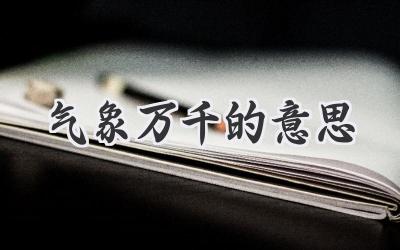 气象万千的意思